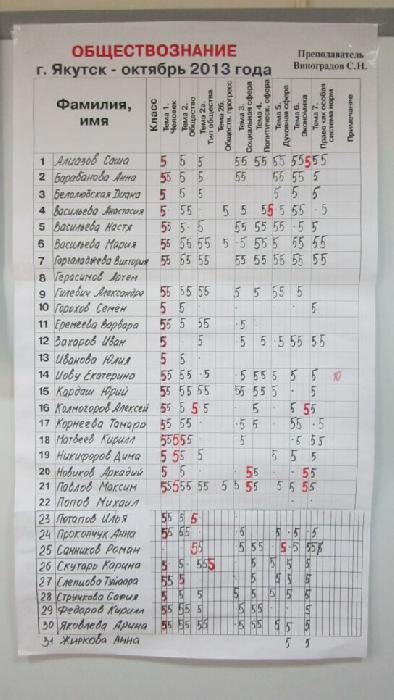 ОБЩЕСТВОЗНАНИЕ
Преподаватель
г. Якутск - октябрь 2013 года
Виноградов С.Н.
Фамилия, имя
Класс
Тема 1. Человек
Тема 2. Общество
Тема 2а. Тип общества
Тема 2б. Обществ. прогресс
Тема 3. Социальная сфера
Тема 4. Политическ. сфера
Тема 5. Духовная сфера
Тема 6. Экономика
Тема 7. Право как особая система норм
Примечание
1 Саша 5 5 5 55 55 55 55 5 5 5
2 Барабанова Анна 55 5 5 55 55 55 5
3 5 5 5 5 5 5
4 Васильева Анастасия 5 55 5 5 5 55 5 55 5
5 Васильева Настя 5 5 5 55 55 55 5 5
6 Васильева Мария 55 55 55 5 5 55 5 55 55
7 Виктория 55 55 55 55 55 55 55 55
8 Герасимов Артем
9 Гилевич Александра 55 55 55 5 5 55 5
10 Горохов Семен 5 5 5
11 Еремеева Варвара 55 5 55 5
12 Захаров Иван 5 5 5 5 5 55 55
13 Иванова Юлия 5 5
14 Екатерина 55 55 5 5 55 5 5 5 5 10
15 Кардаш Юрий 55 55 55 55 55 5 5 5
16 Колмогоров Алексей 55 5 5 5 5 5 55
17 Корнеева Тамара 55 55 5 5 55 5
18 Матвеев Кирилл 55 55 5 5 55
19 Никифоров Дима 5 55 5 5 5 5
20 Новиков Аркадий 5 5 55 55
21 Павлов Максим 55 55 55 55 5 5 55 5 5 5 55
22 Попов Михаил
23 Потапов Илья 55 5 5
24 Прокопчук Анна 55 55 5 5 5 5
25 Санников Роман 55 5 55 5 5 55
26 Скутарь Карина 5 5 55 5 5 5 5 5
27 Слепцова 55 5 5 5 5
28 Стручкова София 5 5 5 5 5 5 5 5 5
29 Федоров Кирилл 55 55 5 5 55 5 5
30 Яковлева Арина 55 55 55 5 55 5 5
31 Жиркова Анна 5 5